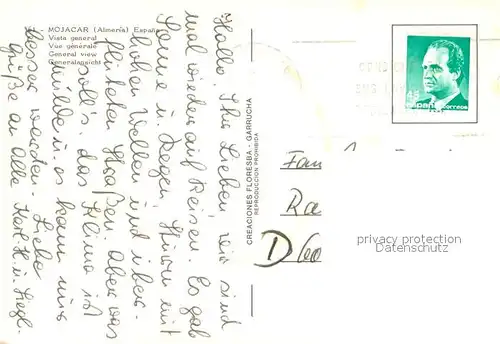 MOJACAR (Almería) España
Vista general
Vue générale
General view
Generalansicht
Hallo, Ihr Lieben, wir sind
mal wieder auf Reisen. Es gab
Sonne u. Regen, Sturm mit
hohen Wellen und über-
fluteten Straßen. Aber was
soll's, das Klima ist
milde u. es kann nur
besser werden. Liebe
Grüße an Alle
CREACIONES FLORESBA - GARRUCHA
REPRODUCCION PROHIBIDA
45
España
correos
Fam
Ra
D
privacy protection
Datenschutz